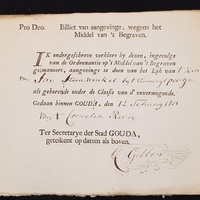 Pro Deo. Billiet van aangevinge, wegens het
Middel van 't Begraven.
IK ondergeschreve verklare by dezen, ingevolge
van de Ordonnantie op 't Middel van 't Begraven
geëmaneert, aangevinge te doen van het Lyk van 't
Jan
als gehorende onder de Classe van d' onvermogende.
Gedaan binnen GOUDA, den 12 February
Cornelia
Ter Secretarye der Stad GOUDA,
geteikent op daten als boven.